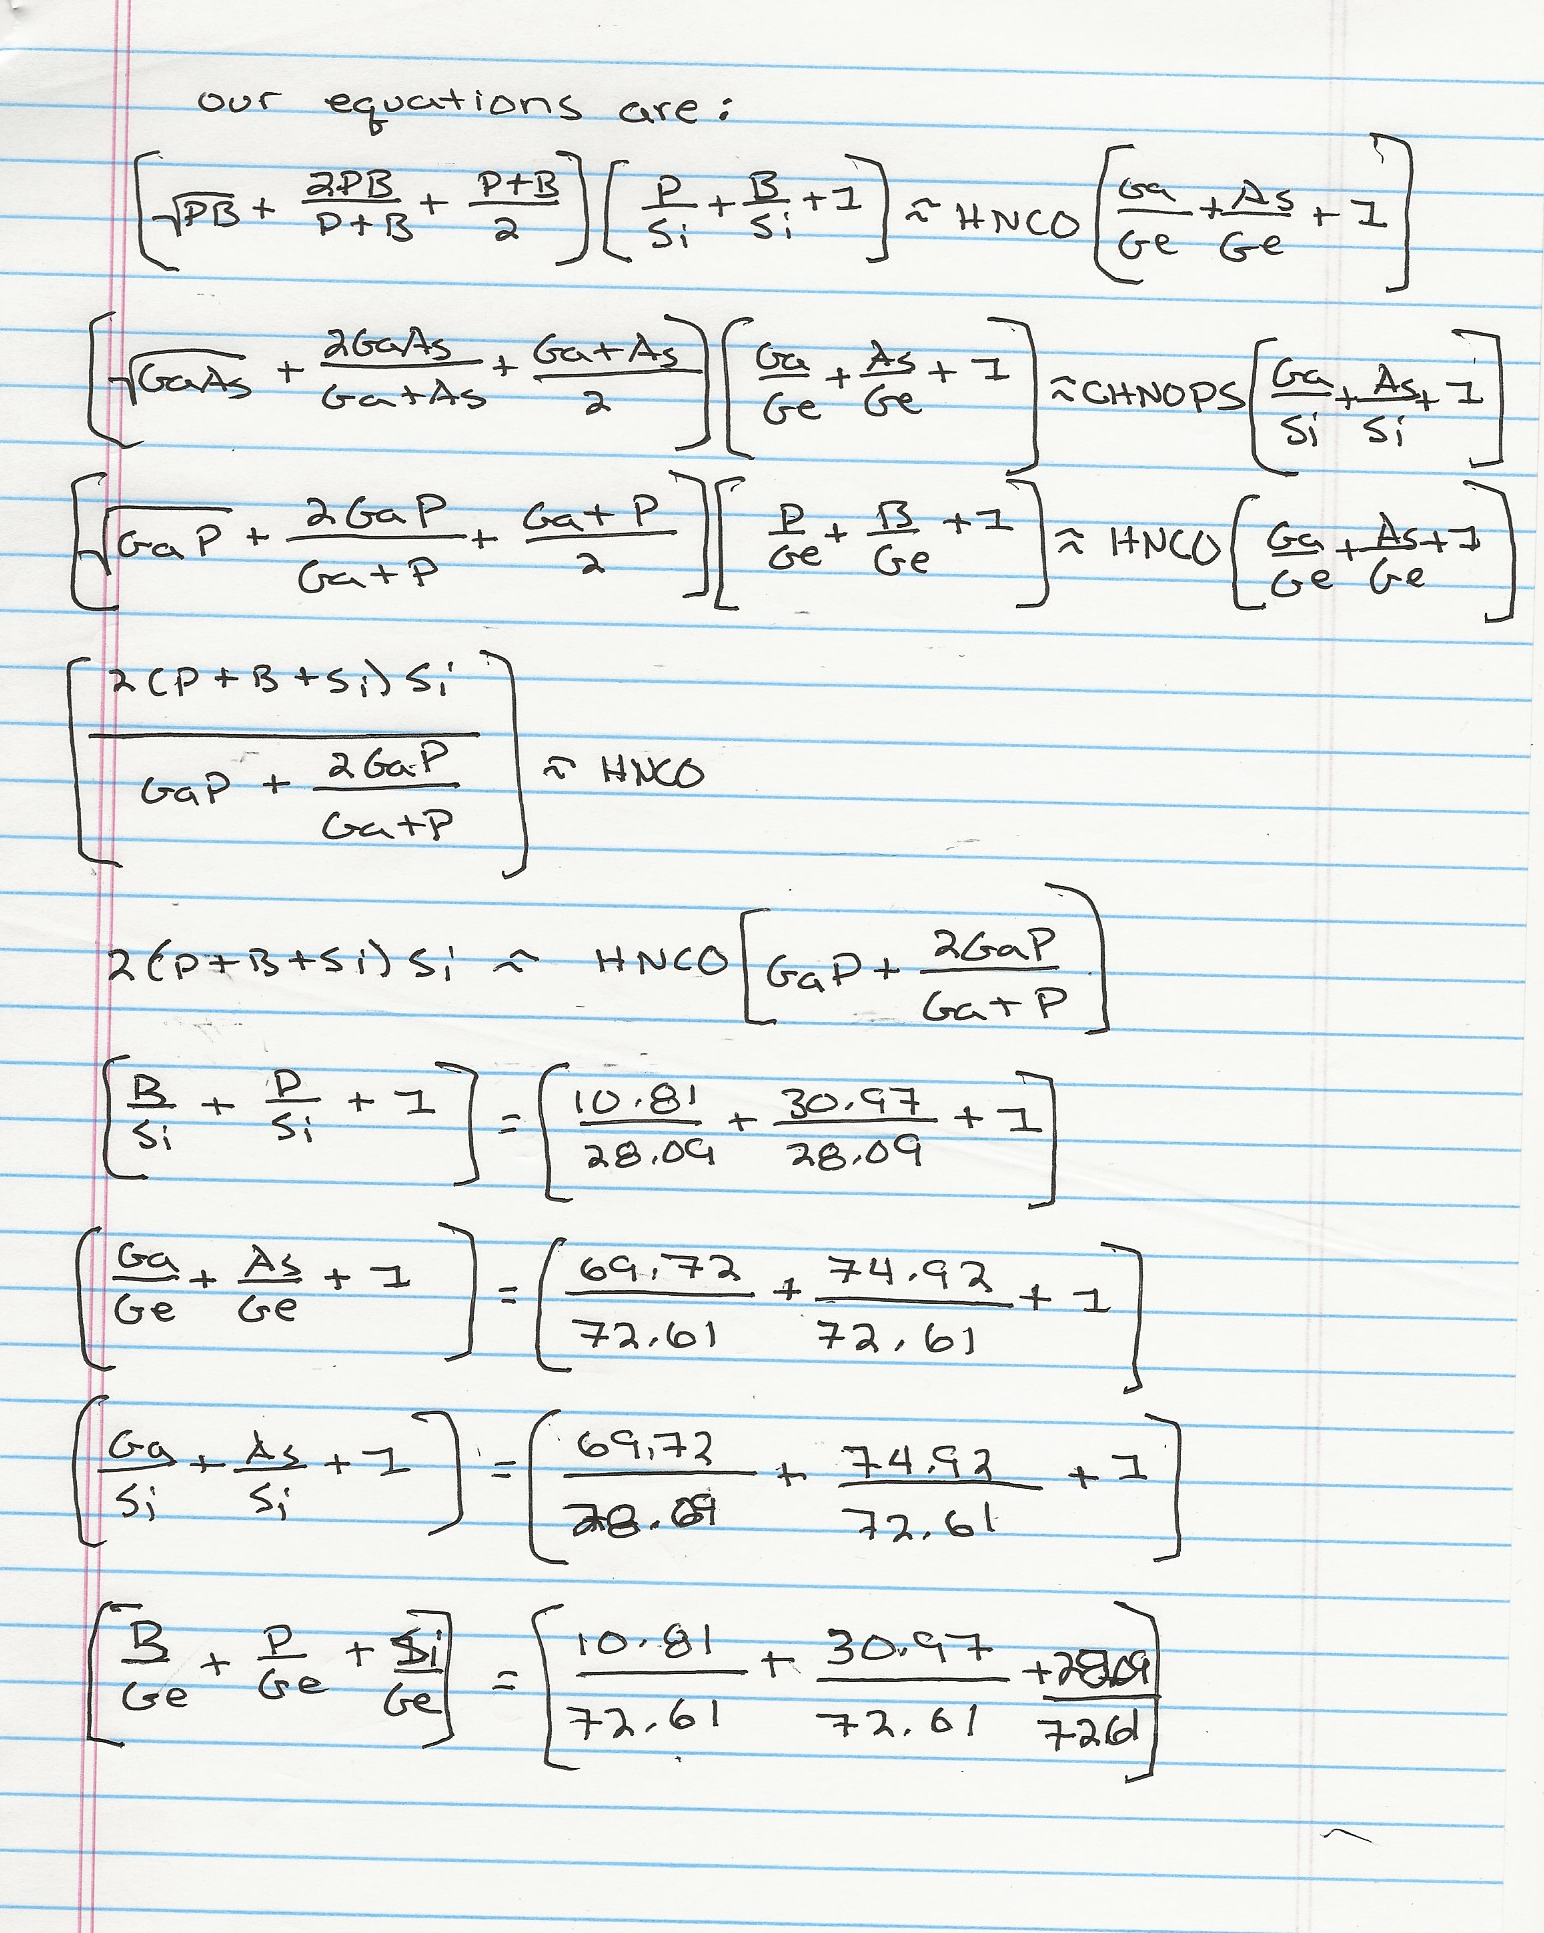 our equations are:
[√PB + 2PB/(P+B) + (P+B)/2] [P/Si + B/Si + 1] ≈ HNCO [Ga/Ge + As/Ge + 1]
[√GaAs + 2GaAs/(Ga+As) + (Ga+As)/2] [Ga/Ge + As/Ge + 1] ≈ CHNOPS [Ga/Si + As/Si + 1]
[√GaP + 2GaP/(Ga+P) + (Ga+P)/2] [P/Ge + B/Ge + 1] ≈ HNCO [Ga/Ge + As/Ge + 1]
[2(P+B+Si)Si / (GaP + 2GaP/(Ga+P))] ≈ HNCO
2(P+B+Si)Si ≈ HNCO [GaP + 2GaP/(Ga+P)]
[B/Si + P/Si + 1] = [10.81/28.09 + 30.97/28.09 + 1]
[Ga/Ge + As/Ge + 1] = [69.72/72.61 + 74.92/72.61 + 1]
[Ga/Si + As/Si + 1] = [69.72/28.09 + 74.92/72.61 + 1]
[B/Ge + P/Ge + Si/Ge] = [10.81/72.61 + 30.97/72.61 + 28.09/72.61]